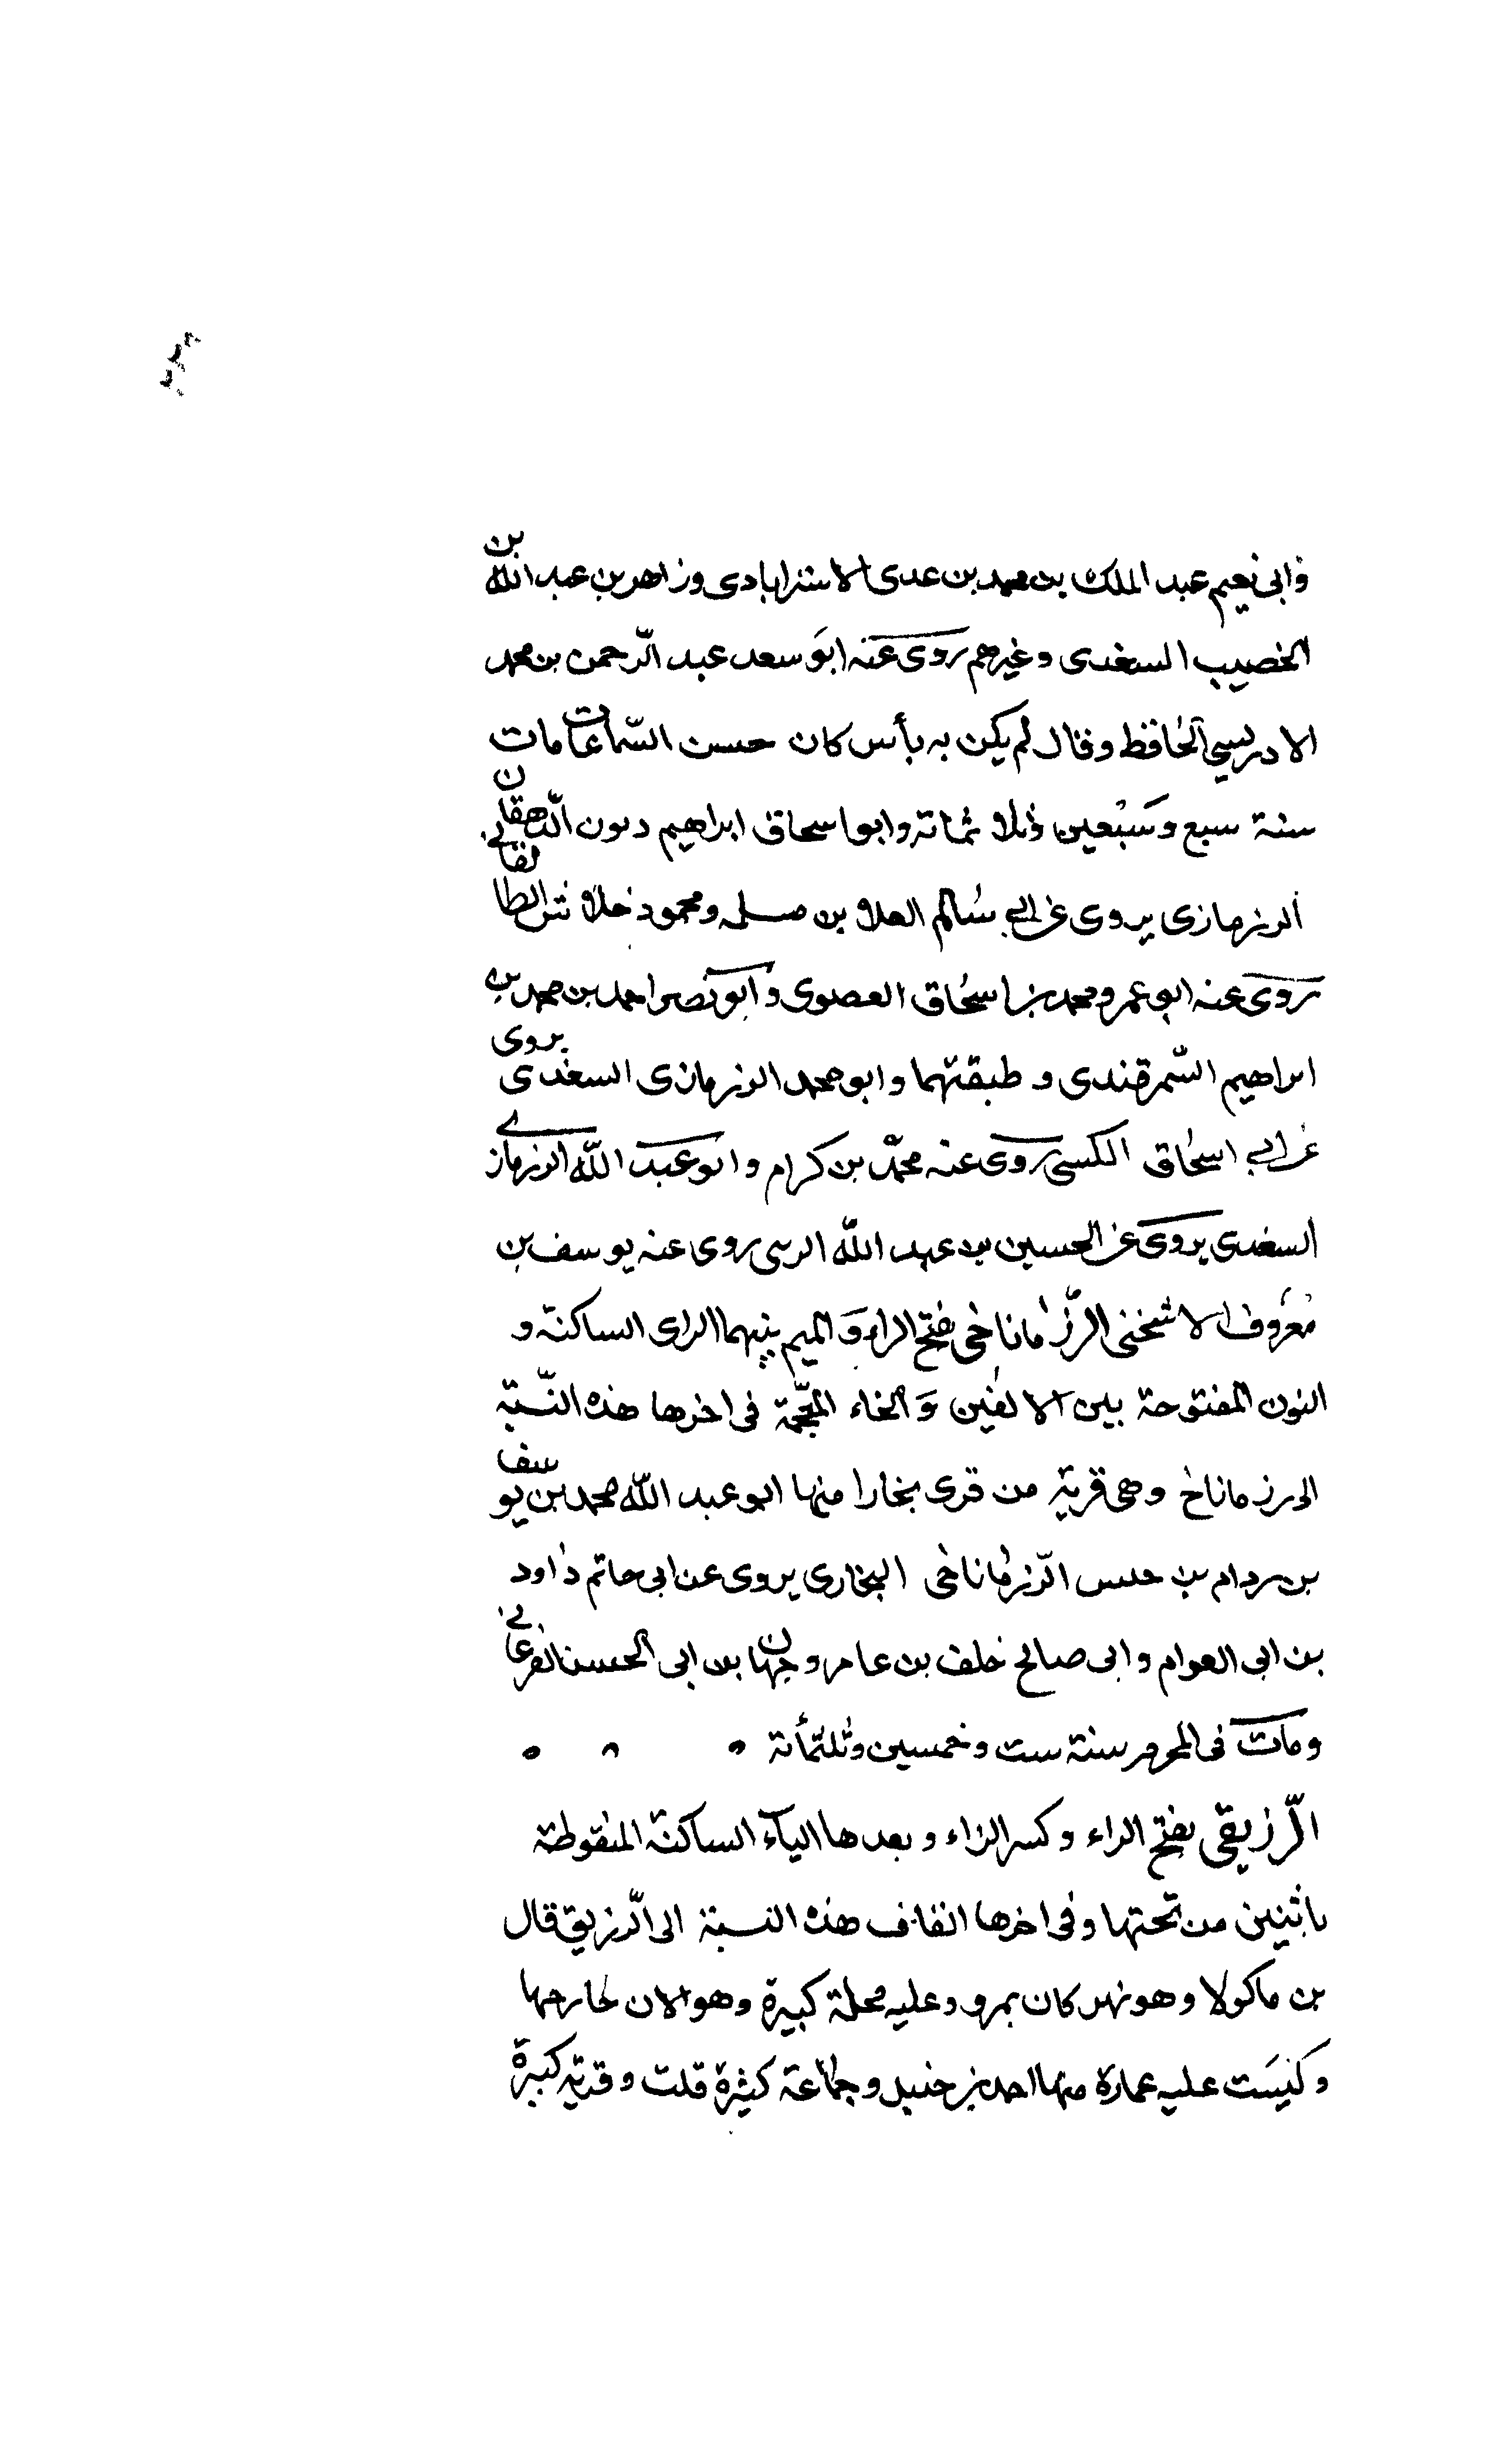 وابى نعيم عبد الملك بن محمد بن عدى الاستراباذى وزاهر بن عبد الله بن
الخصيب السغدى وغيرهم روى عنه ابو سعد عبد الرّحمن بن محمد
الادريسي الحافظ وقال لم يكن به بأس كان حسن السّماعات مات
سنة سبع وسبعين وثلاثمائة وابو اسحاق ابراهيم الدّهقان
الرزمازى يروى عن ابي سالم العلاء بن مسلمه ومحمود خلاش الطالقاني
روى عنه ابو عمرو محمد بن اسحاق العصفرى وابو نصر احمد بن محمد بن
ابراهيم السّمرقندى وطبقتهما وابو محمد الرزمازى السغدى يروى
عن ابي اسحاق الكسي روى عنه محمّد بن كرام وابو عبد اللّه الرزمازي
السغدى يروى عن الحسين بن عبد اللّه الرسى روى عنه يوسف بن
معروف الاشتخنى الرّزماناخى بفتح الراء والميم بينهما الزاى الساكنة و
النون المفتوحة بين الالفين والخاء المعجمة فى اخرها هذه النّسبة
الى رزماناخ وهى قرية من قرى بخارا منها ابو عبد اللّه محمد بن يوسف
بن ردام بن حلس الرّزماناخى البخارى يروى عن ابى حاتم داود
بن ابى العوام وابى صالح خلف بن عامر وجهان بن ابى الحسن الفرغاني
ومات فى المحرم سنة ست وخمسين وثلثمأئة
الرّزيقى بفتح الراء وكسر الزاء وبعدها الياء الساكنة المنقوطة
باثنين من تحتها وفى اخرها القاف هذه النسبة الى الرّزيق قال
بن ماكولا وهو نهر كان بمرو وعليه محلة كبيرة وهو الان خارجها
وليست عليه عمارة منها احمد بن حنبل وجماعة كثيرة قلت وقرية كبيرة